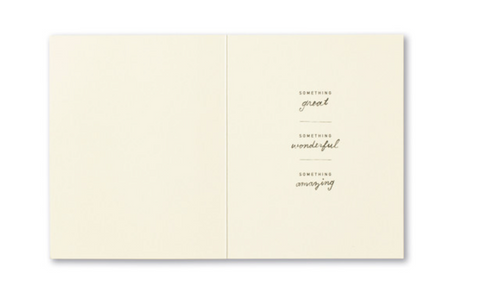 SOMETHING
great
SOMETHING
wonderful
SOMETHING
amazing